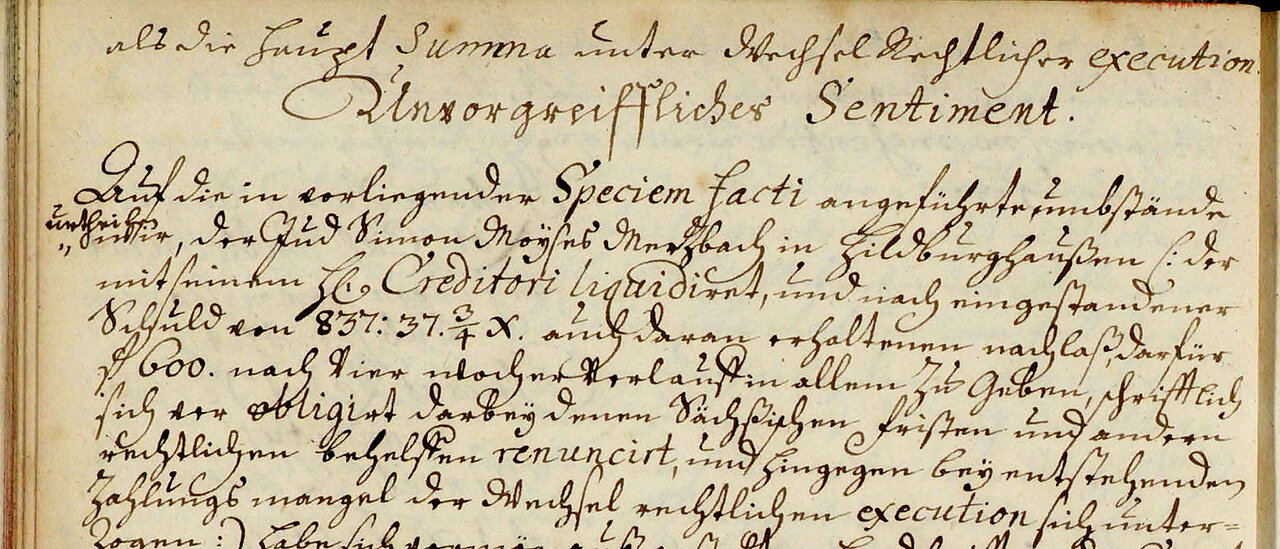 als die Haupt Summa unter Wechsel Rechtlicher execution.
Unvorgreiffliches Sentiment.
Auf die in vorliegender Speciem facti angeführte umbstände
urtheilen
wir, der Jud Simon Moÿses Mertzbach in Hildburghaußen (: der
mit seinem H. Creditori liquidiret, und nach eingestandener
Schuld von 837: 37. 3/4 X. auch daran erhaltenen nachlaß, darfür
f 600. nach Vier wochen Verlauff in allem Zu Geben, schrifftlich
sich ver obligirt darbey denen Sächßischen fristen und andern
rechtlichen behelffen renuncirt, und hingegen bey entstehenden
Zahlungs mangel der Wechsel rechtlichen execution sich unter=
zogen :) habe sich